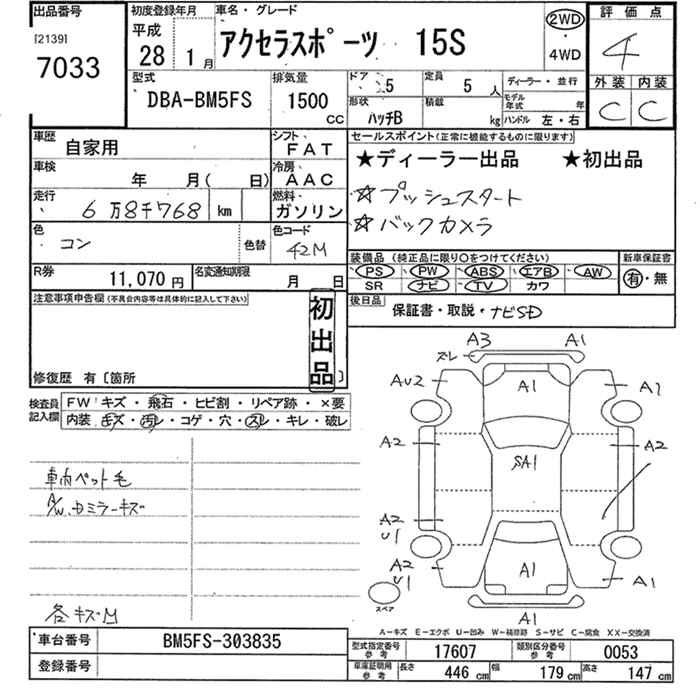 出品番号
[2139]
7033
初度登録年月
平成
28 1 月
車名・グレード
アクセラスポーツ 15S
2WD
・
4WD
評価点
4
外装 内装
C C
型式
DBA-BM5FS
排気量
1500
CC
ドア 5
定員 5 人
形状 ハッチB
積載 kg
ディーラー・並行
モデル年式 年
ハンドル 左・右
車歴 自家用
シフト FAT
車検 年 月( 日)
冷房 AAC
走行 6万8千768 km
燃料 ガソリン
色 コン
色替
色コード 42M
R券 11,070 円
名変通知期限 月 日
セールスポイント(正常に機能するものに限ります)
★ディーラー出品 ★初出品
☆プッシュスタート
☆バックカメラ
装備品 (純正品に限り○をつけてください)
PS PW ABS エアB AW
SR ナビ TV カワ
新車保証書
有・無
後日品
保証書・取説・ナビSD
注意事項申告欄(不具合内容等は具体的に記入して下さい)
初出品
修復歴 有〔箇所 〕
検査員記入欄
FW キズ・飛石・ヒビ割・リペア跡・×要
内装 キズ・汚レ・コゲ・穴・スレ・キレ・破レ
車内ペット毛
A/W、ドミラーキズ
各キズM
A3 A1
ズレ
AU2 A1 A1
A2 SA1 A2
A2
U1
A2
U1
A1 A1
スペア
A1
A-キズ E-エクボ U-凹み W-補修跡 S-サビ C-腐食 XX-交換済
車台番号 BM5FS-303835
登録番号
型式指定番号 参考 17607
類別区分番号 参考 0053
車庫証明用 参考 長さ 446 cm 幅 179 cm 高さ 147 cm